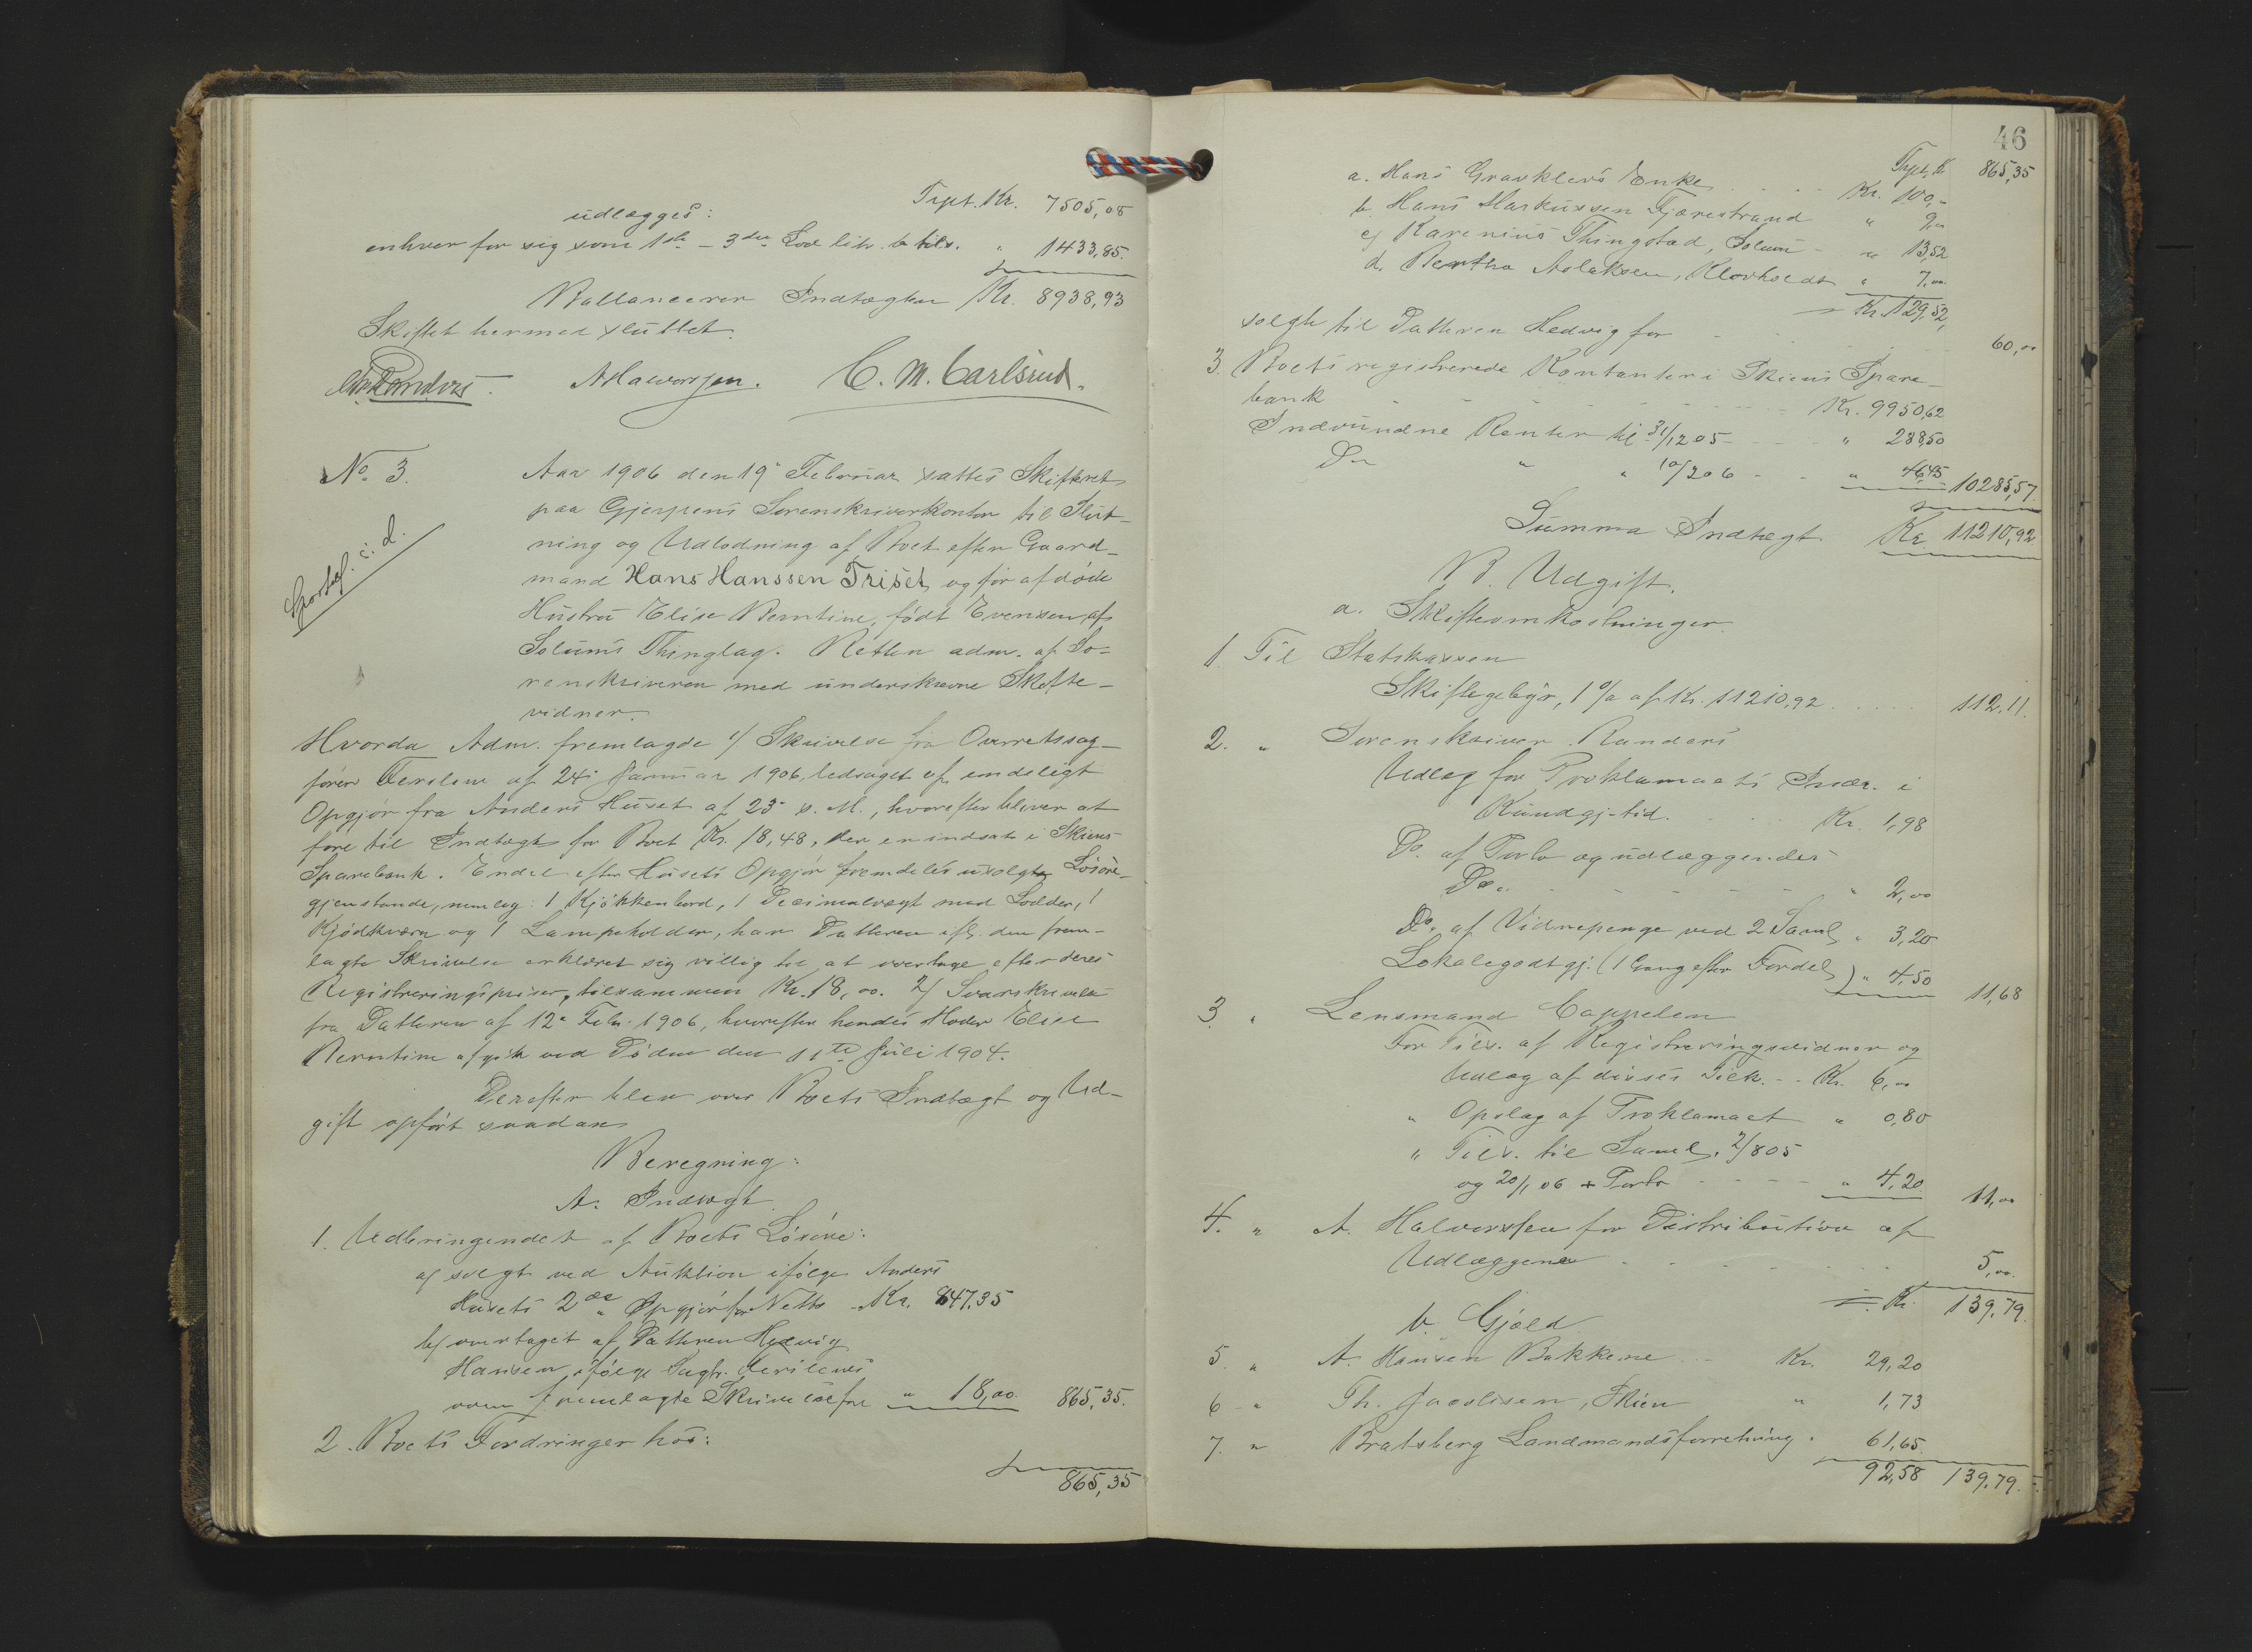 Trpt. Kr. 7505,08
udlægges:
enhver for sig som 1ste - 3die Lod litr. b tils. " 1433,85.
Ballancerer Indtægten Kr. 8938,93
Skiftet hermed sluttet.
Randers. AHalvorsen. C. M. Carlsrud.
No 3.
Aar 1906 den 19' Februar sattes Skifteret
paa Gjerpens Sorenskriverkontor til Slut-
ning og Udlodning af Boet efter Gaard-
mand Hans Hanssen Triset og før afdøde
Hustru Elise Berntine, født Evensen af
Solums Thinglag. Retten adm. af So-
renskriveren med underskrevne Skifte-
vidner.
Hvorda Adm. fremlagde 1/ Skrivelse fra Overretssag-
fører Ferslew af 24' Januar 1906, ledsaget af endeligt
Opgjør fra Anders Huset af 23' s. M., hvorefter bliver at
føre til Indtægt for Boet Kr. 18,48, der er indsat i Skiens
Sparebank. Endel efter Husets Opgjør fremdeles usolgte Løsøre-
gjenstande, nemlig: 1 Kjøkkenbord, 1 Decimalvægt med Lodder, 1
Kjødkværn og 1 Lampeholder, har Datteren ifl. den frem-
lagte Skrivelse erklæret sig villig til at overtage efter deres
Registreringspriser, tilsammen Kr. 18,00. 2/ Svarskrivelse
fra Datteren af 12' Febr. 1906, hvorefter hendes Moder Elise
Berntine afgik ved Døden den 11te Juli 1904.
Derefter blev over Boets Indtægt og Ud-
gift opført saadan
Beregning:
A. Indtægt.
1. Udbringendet af Boets Løsøre:
a/ solgt ved Auktion ifølge Anders
Husets 2de Opgjør for Netto - Kr. 847,35
b/ overtaget af Datteren Hedvig
Hansen ifølge Sagfr.
fremlagte Skrivelse for " 18,00. 865,35.
2. Boets Fordringer hos:
865,35
46
Trpt. Kr 865,35
a. Hans Gravklevs Enke Kr. 100,-
b. Hans Markussen Fjærestrand " 9,00
c/ Karenius Thingstad, Solum - " 13,52
d. Bertha Aslaksen, Klovholdt " 7,00
= Kr. 129,52,
solgte til Datteren Hedvig for 60,00
3. Boets registrerede Kontanter i Skiens Spare-
bank Kr. 9950,62
Indvundne Renter til 31/12 05 - " 288,50
Do " " 10/2 06 - " 46,45 10285,57.
Summa Indtægt Kr. 11210,92
B. Udgift.
a. Skifteomkostninger.
1. Til Statskassen
Skiftegebyr, 1 % af Kr. 11210,92 112.11.
2. " Sorenskriver Randers
Udlæg for Proklamaets Inser. i
Kundgj.-tid. Kr. 1,98
Do. af Porto og udlæggendes
Do. " 2,00
Do. af Vidnepenge ved 2 Saml " 3,20
Lokalegodtgj. (1 Gang efter Fordel) " 4,50 11,68
3. " Lensmand Cappelen
For Tils. af Registreringsvidner og
Udlæg af disses Diæt. - - Kr. 6,00
" Opslag af Proklamaet " 0,80
" Tils. til Saml. 2/8 05
og 20/1 06 + Porto - - - - " 4,20. 11,00
4. " A. Halvorssen for Distribution af
Udlæggene 5,00.
= Kr. 139,79.
b. Gjæld
5. " A. Hansen Bakkene - Kr. 29,20
6 - " Th. Jacobsen, Skien " 1,73
7. " Bratsberg Landmandsforretning. 61,65.
92,58 139,79.